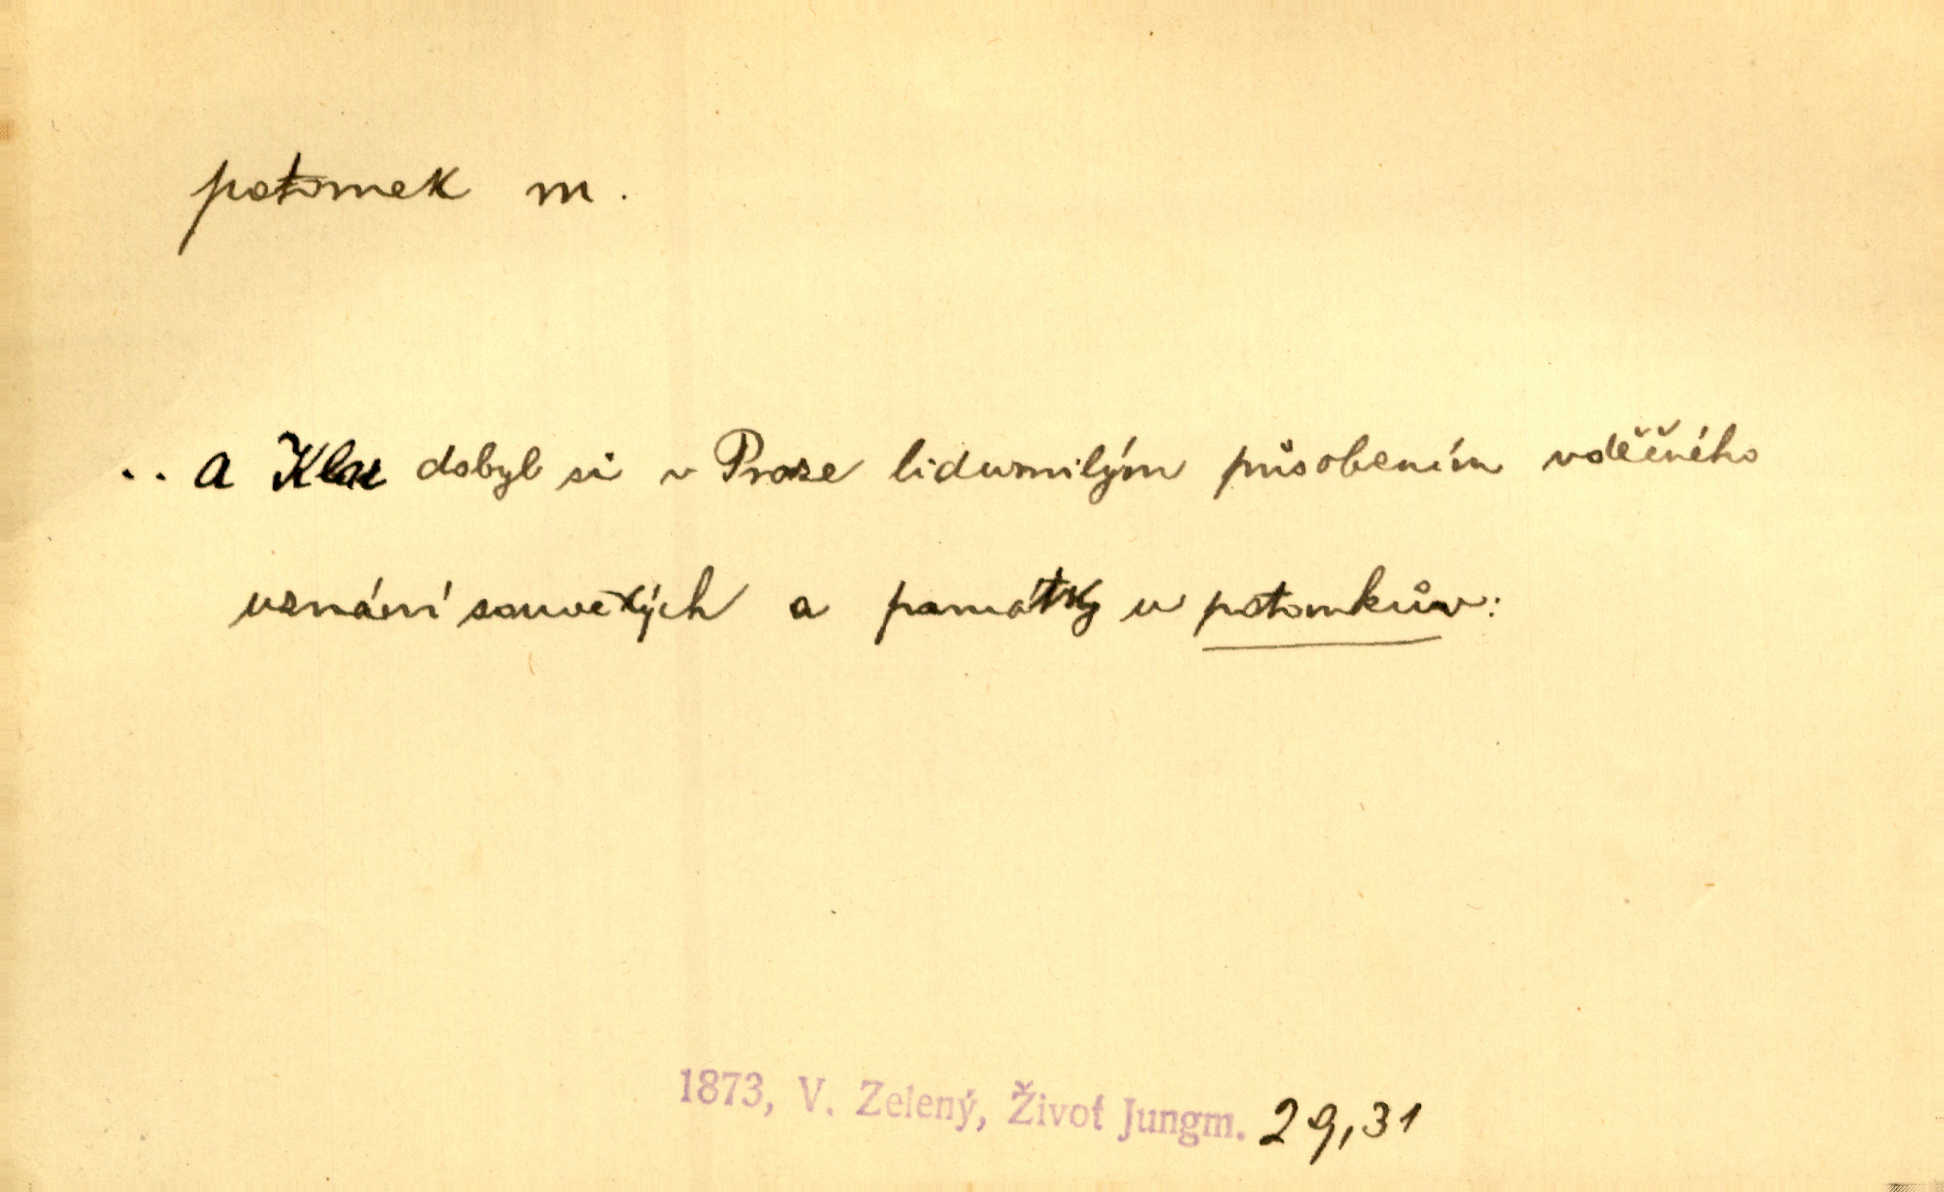 potomek m.
.. a Klar dobyl si v Praze lidumilým působením vděčného
uznání souvěkých a památky u potomkův:
1873, V. Zelený, Život Jungm. 29,31